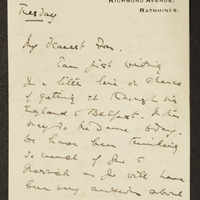 RICHMOND AVENUE,
RATHMINES.
Tuesday
My Dearest
I am just writing
a little line on chance
of getting it through via
England & Belfast.
to be done today.
We have been thinking
so much of you &
as you will have
been very anxious about